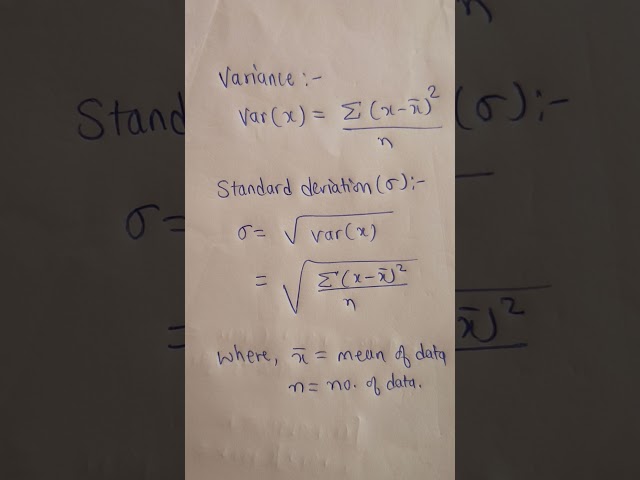 Variance :-
Var(x) = Σ(x-x̄)²
n
Standard deviation (σ):-
σ = √var(x)
= √Σ(x-x̄)²
n
where, x̄ = mean of data
n = no. of data.